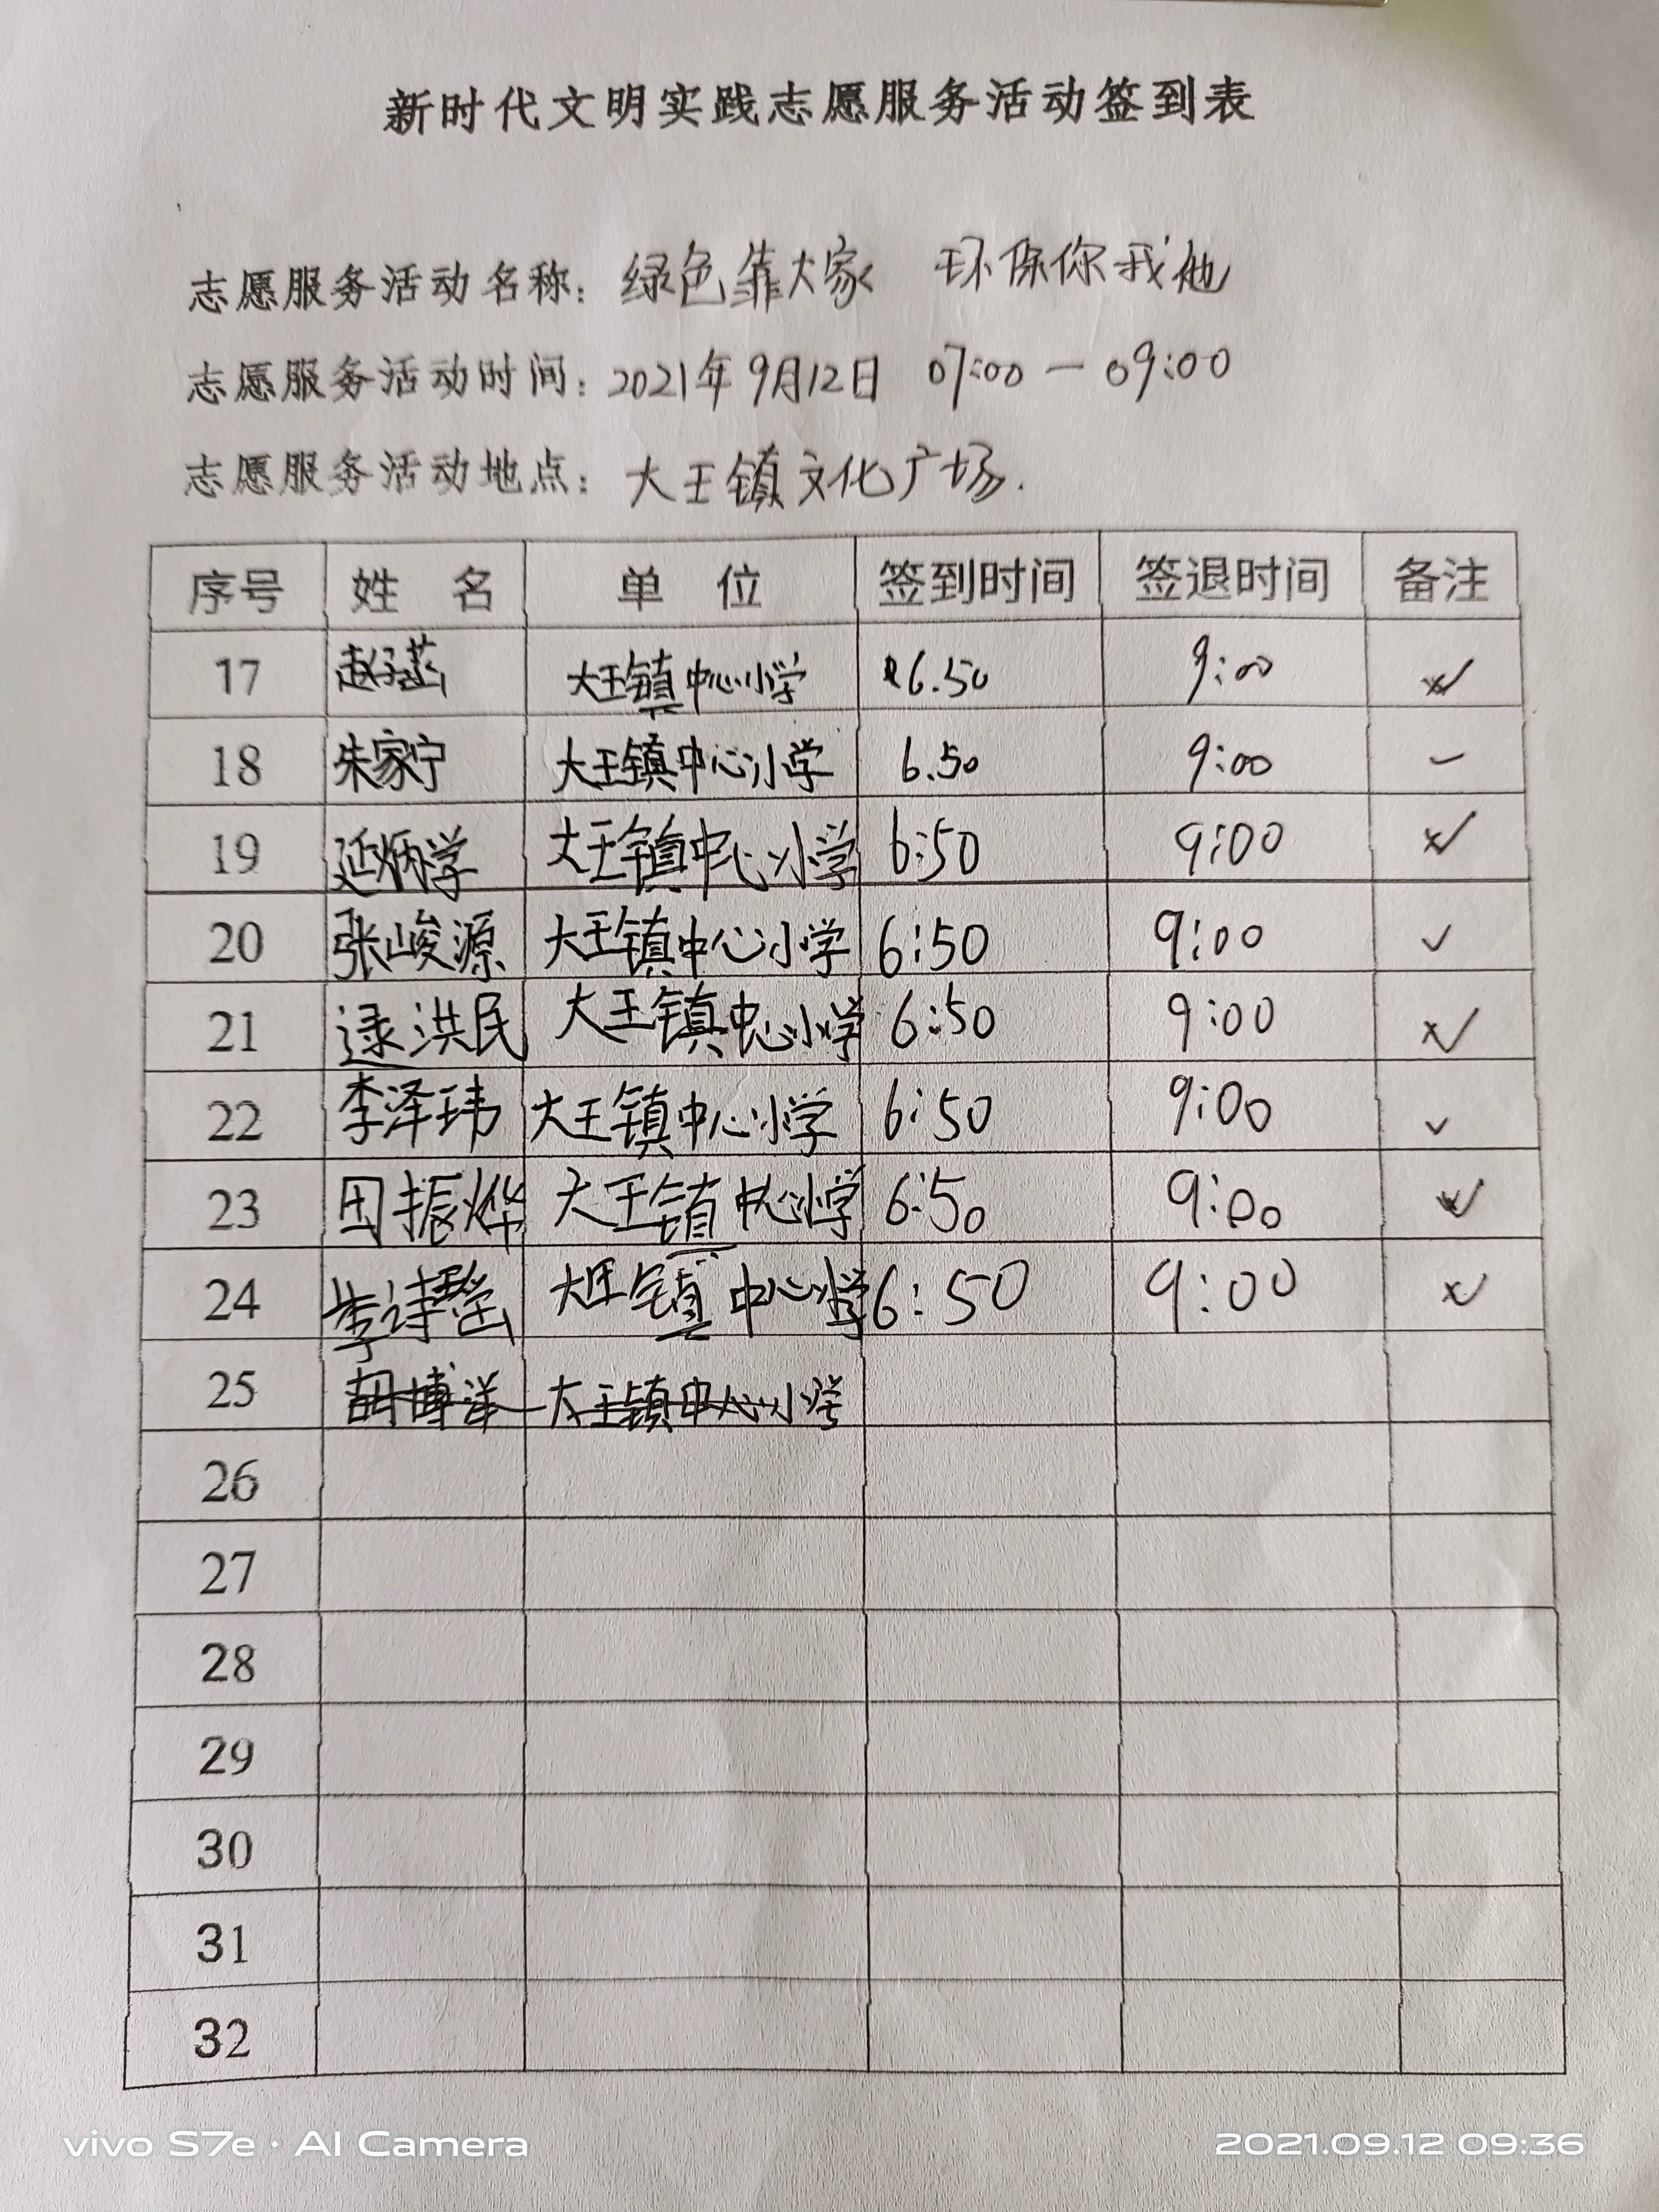 新时代文明实践志愿服务活动签到表
志愿服务活动名称：绿色靠大家 环保你我他
志愿服务活动时间：2021年9月12日 07:00－09:00
志愿服务活动地点：大王镇文化广场.
序号 姓名 单位 签到时间 签退时间 备注
17 大王镇中心小学 6.50 9:00
18 朱家宁 大王镇中心小学 6.50 9:00
19 延炳学 大王镇中心小学 6:50 9:00
20 张峻源 大王镇中心小学 6:50 9:00 ✓
21 逯洪民 大王镇中心小学 6:50 9:00
22 李泽玮 大王镇中心小学 6:50 9:00 ✓
23 田振烨 大王镇中心小学 6:50 9:00
24 李诗 大王镇中心小学 6:50 9:00
25 胡博洋 大王镇中心小学
26
27
28
29
30
31
32
vivo S7e · AI Camera 2021.09.12 09:36